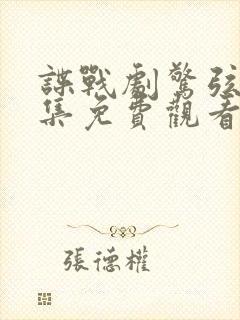 諜戰劇驚弦
集免費觀看
張德權